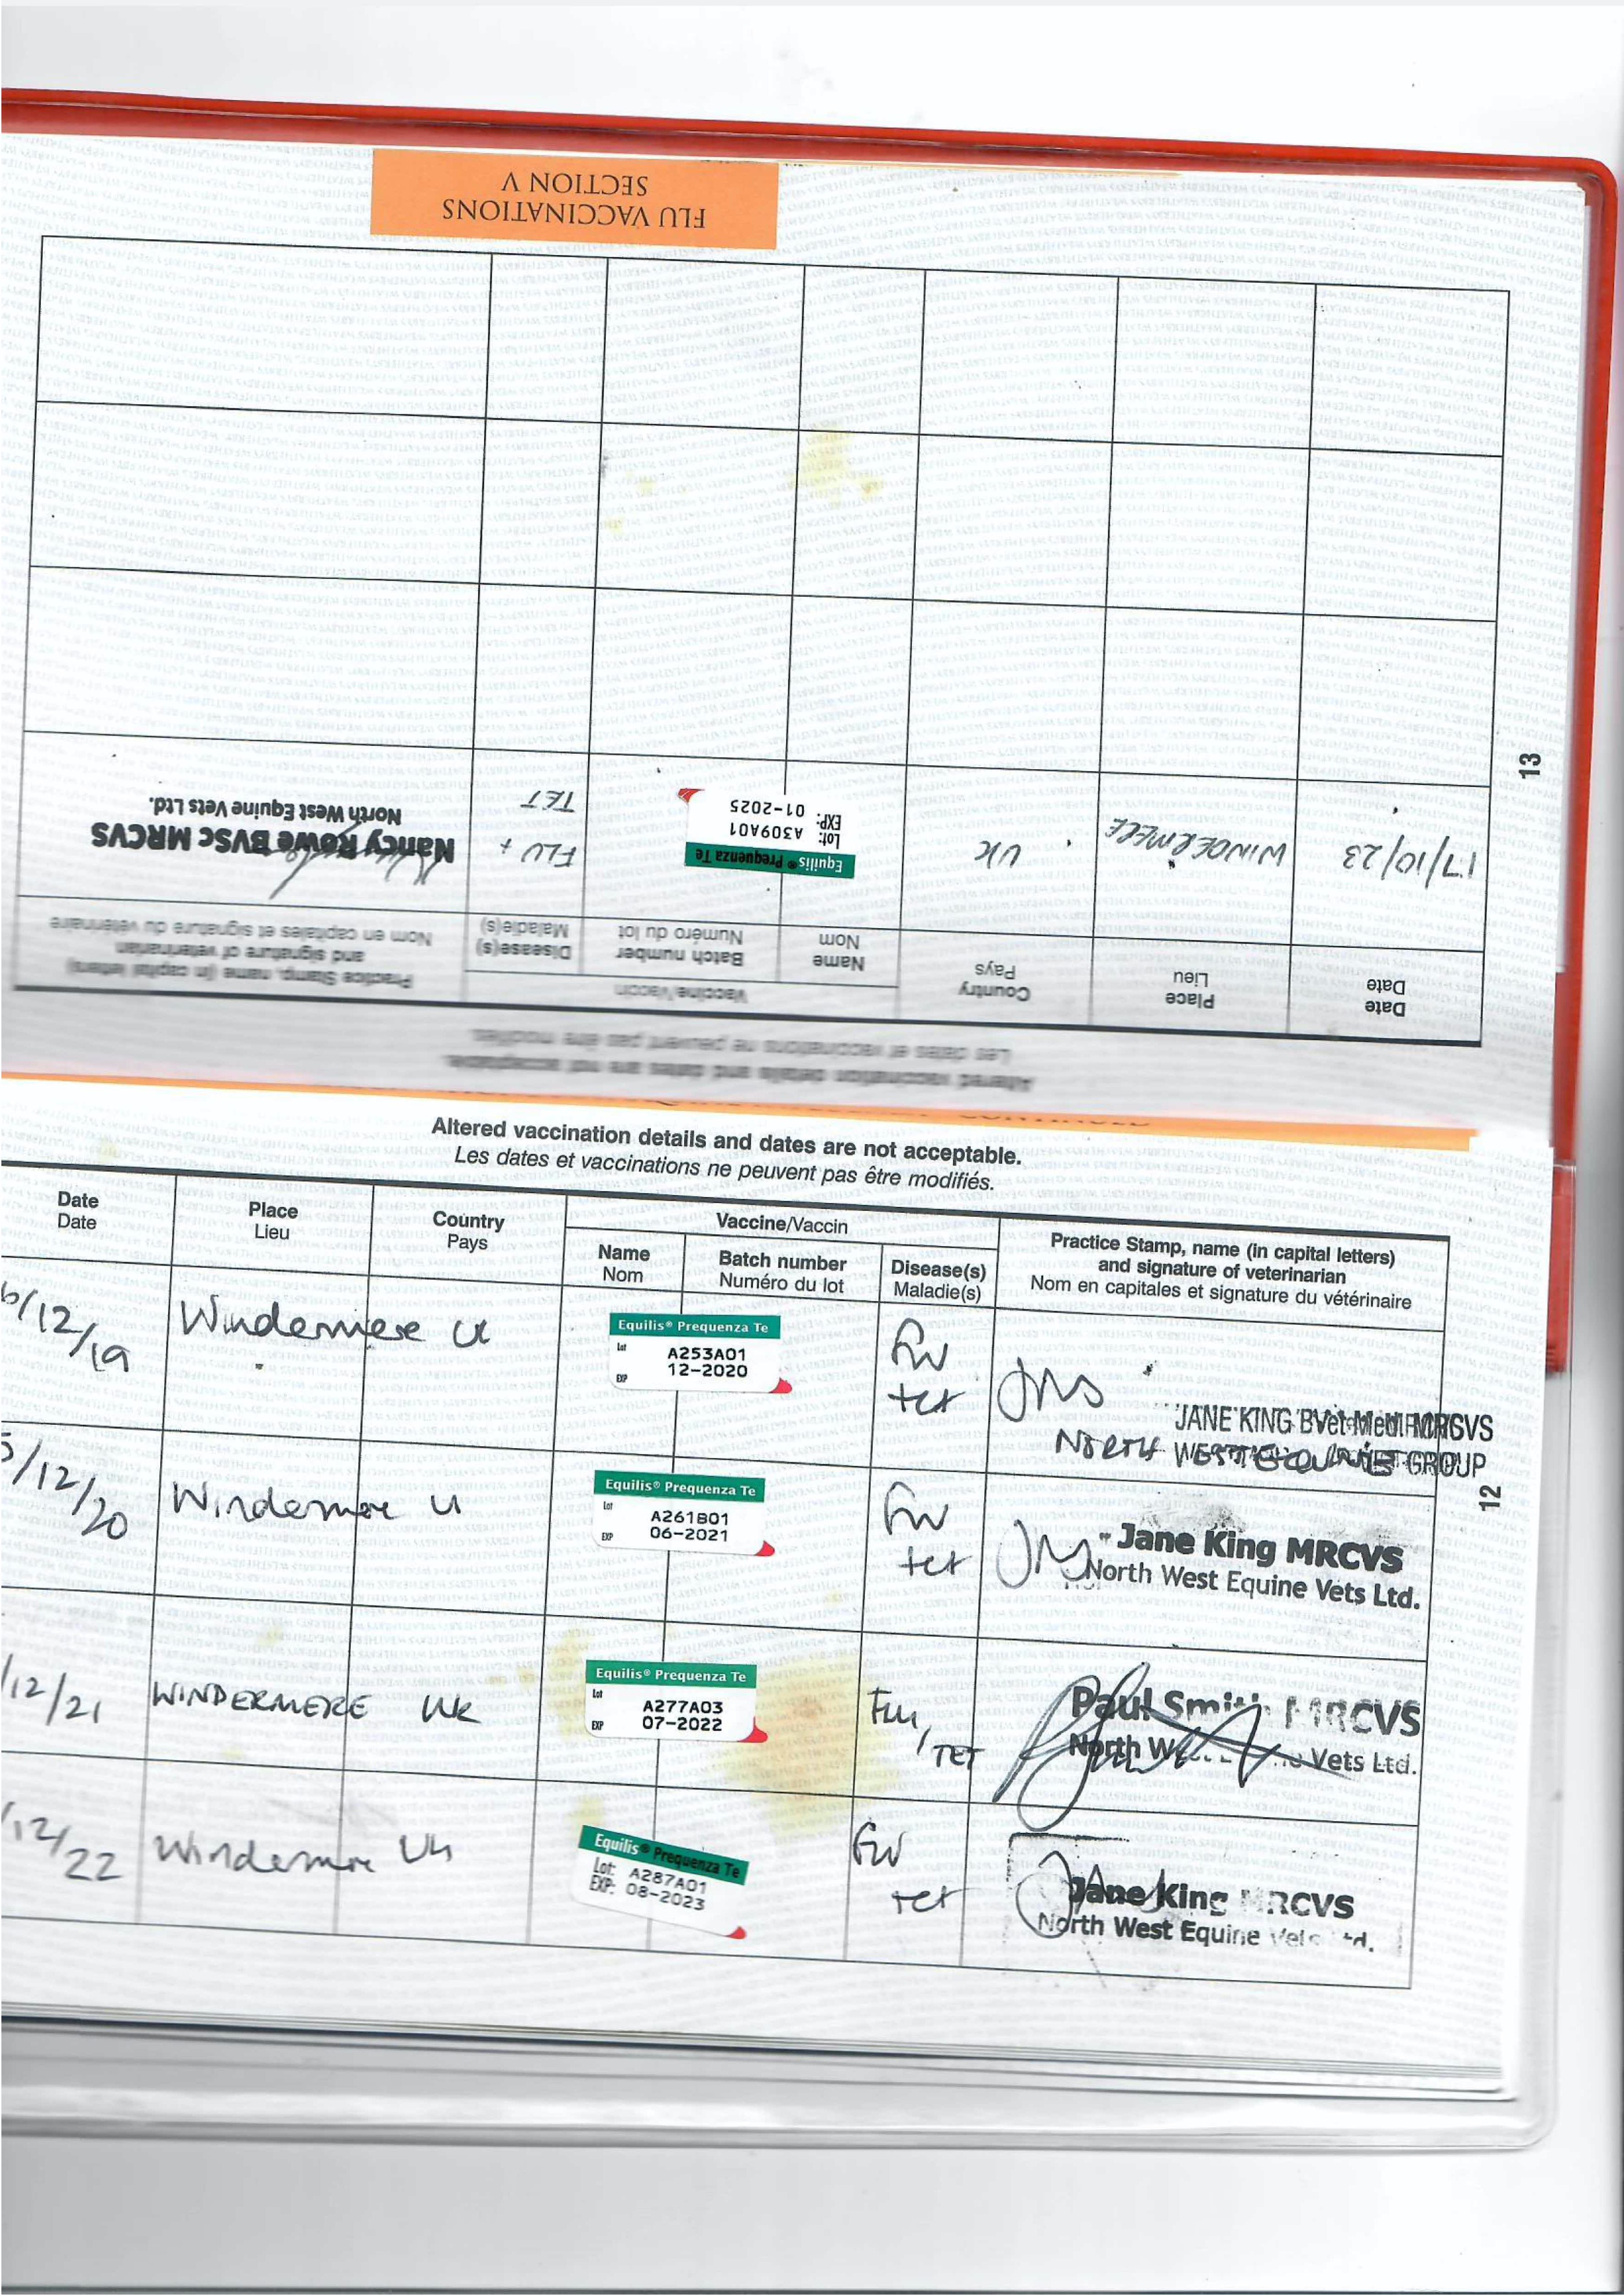 FLU VACCINATIONS
SECTION V
Altered vaccination details and dates are not acceptable.
Les dates et vaccinations ne peuvent pas être modifiés.
Date
Date
Place
Lieu
Country
Pays
Vaccine/Vaccin
Name
Nom
Batch number
Numéro du lot
Disease(s)
Maladie(s)
Practice Stamp, name (in capital letters)
and signature of veterinarian
Nom en capitales et signature du vétérinaire
17/10/23
WINDERMERE
UK
Equilis® Prequenza Te
Lot: A309A01
EXP: 01-2025
FLU +
TET
Nancy Rowe BVSc MRCVS
North West Equine Vets Ltd.
13
Altered vaccination details and dates are not acceptable.
Les dates et vaccinations ne peuvent pas être modifiés.
Date
Date
Place
Lieu
Country
Pays
Vaccine/Vaccin
Name
Nom
Batch number
Numéro du lot
Disease(s)
Maladie(s)
Practice Stamp, name (in capital letters)
and signature of veterinarian
Nom en capitales et signature du vétérinaire
6/12/19
Windermere
Equilis® Prequenza Te
Lot A253A01
EXP 12-2020
Flu
tet
JANE KING BVetMed MRCVS
NORTH WEST EQUINE GROUP
5/12/20
Windermere
Equilis® Prequenza Te
Lot A261B01
EXP 06-2021
Flu
tet
Jane King MRCVS
North West Equine Vets Ltd.
/12/21
WINDERMERE
UK
Equilis® Prequenza Te
Lot A277A03
EXP 07-2022
Flu/
TET
Paul Smith MRCVS
North West Equine Vets Ltd.
/12/22
Windermere
UK
Equilis® Prequenza Te
Lot: A287A01
EXP: 08-2023
Flu
tet
Jane King MRCVS
North West Equine Vets Ltd.
12